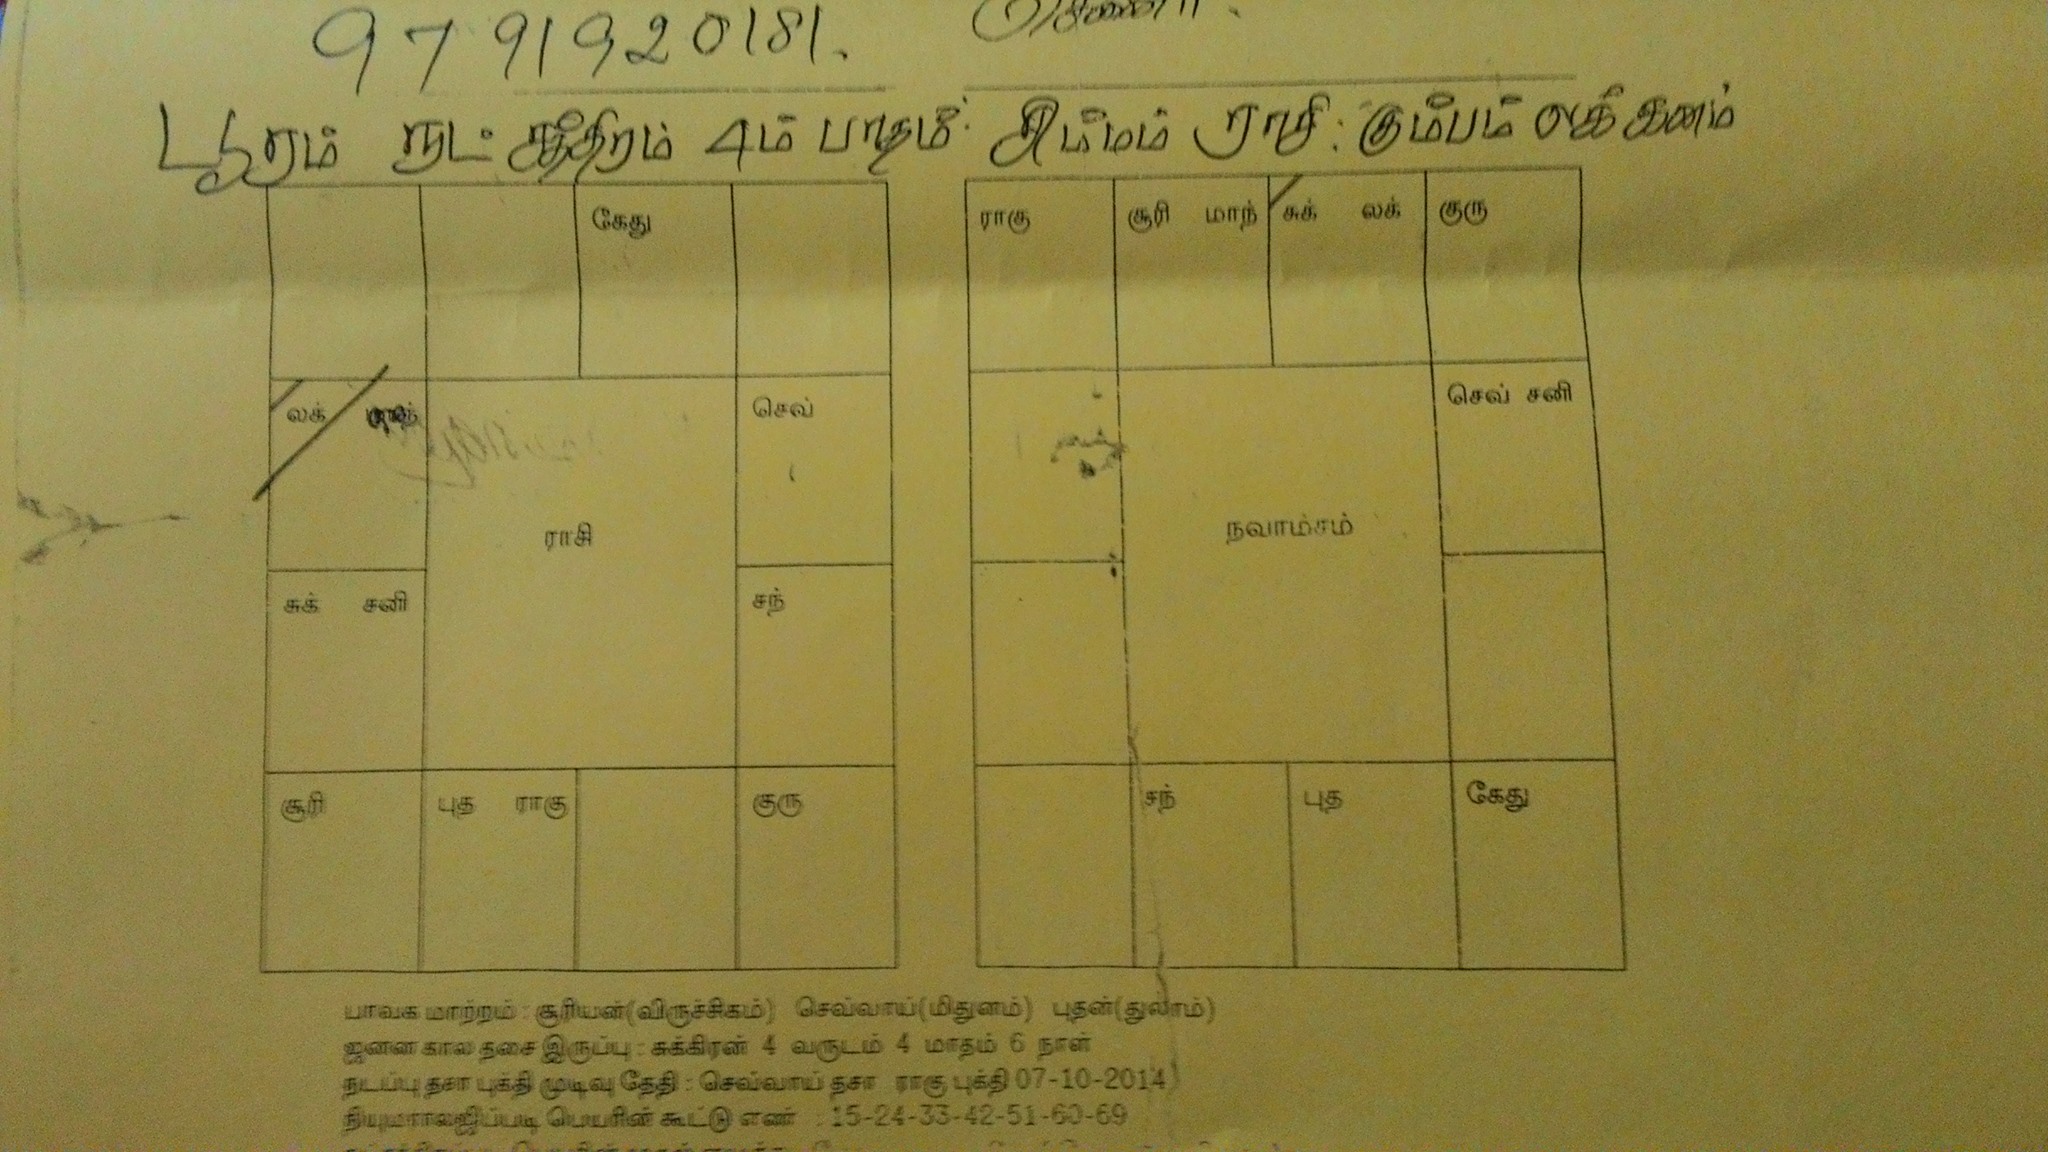 9791920181.
பூரம் நட்சத்திரம் 4ம் பாதம். சிம்மம் ராசி: கும்பம் லக்கினம்
கேது
லக்
செவ்
ராசி
சுக் சனி
சந்
சூரி
புத ராகு
குரு
ராகு
சூரி மாந்
சுக் லக்
குரு
செவ் சனி
நவாம்சம்
சந்
புத
கேது
பாவக மாற்றம் : சூரியன்(விருச்சிகம்) செவ்வாய்(மிதுனம்) புதன்(துலாம்)
ஜனன கால தசை இருப்பு : சுக்கிரன் 4 வருடம் 4 மாதம் 6 நாள்
நடப்பு தசா புக்தி முடிவு தேதி : செவ்வாய் தசா ராகு புக்தி 07-10-2014
நியுமராலஜிப்படி பெயரின் கூட்டு எண் : 15-24-33-42-51-60-69